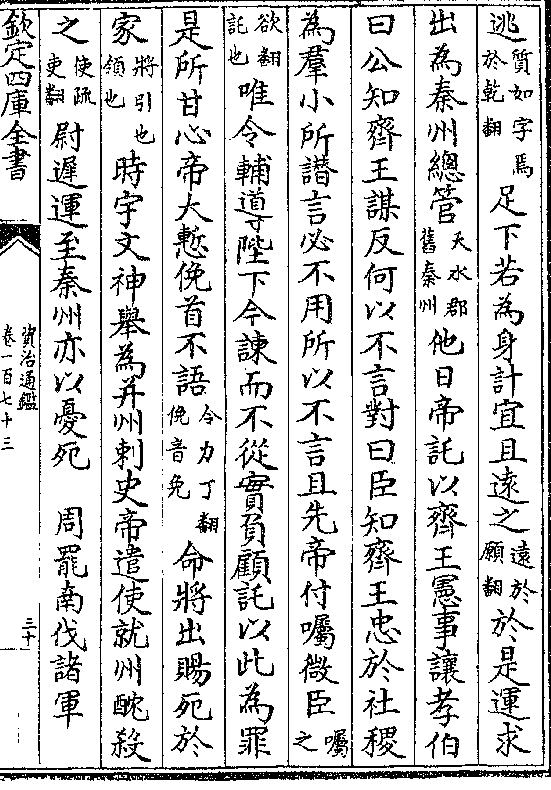 逃質如字焉於乾翻足下若為身計宜且遠之遠於願翻於是運求
出為秦州總管天水郡舊秦州他日帝託以齊王憲事讓孝伯
曰公知齊王謀反何以不言對曰臣知齊王忠於社稷
為羣小所譖言必不用所以不言且先帝付囑微臣囑之
欲翻託也唯令輔導陛下今諫而不從實負顧託以此為罪
是所甘心帝大慙俛首不語令力丁翻俛音免命將出賜死於
家將引也領也時宇文神舉為并州刺史帝遣使就州酖殺
之使疏吏翻尉遲運至秦州亦以憂死　周罷南伐諸軍
欽定四庫全書
資治通鑑
卷一百七十三
三十